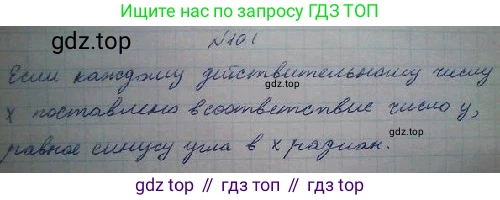 Ищите нас по запросу ГДЗ ТОП
gdz.top
№101
gdz.top
Если каждому действительному числу
gdz.top
x поставлено в соответствие число y,
gdz.top
равное синусу угла в x радиан.
gdz.top // гдз.top // гдз.top